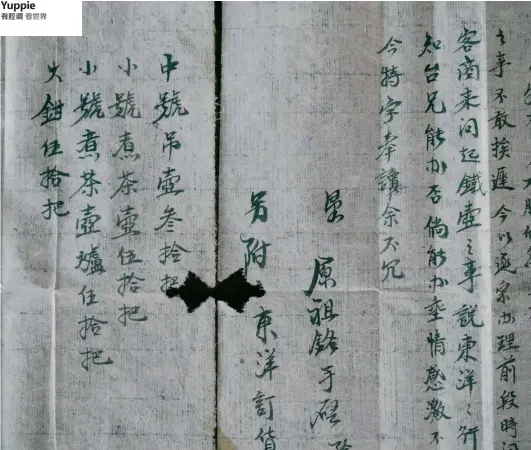 Yuppie
有腔调 看世界
之事不敢挨遲今以逐宗办理前段時间
客商来问起鐵壺之事說東洋之行
知台兄能办否倘能办垂情感激不
今特字奉讀余不冗
原祖銘手
另附 東洋訂貨
中號吊壺叁拾把
小號煮茶壺伍拾把
小號煮茶壺爐伍拾把
火鉗伍拾把